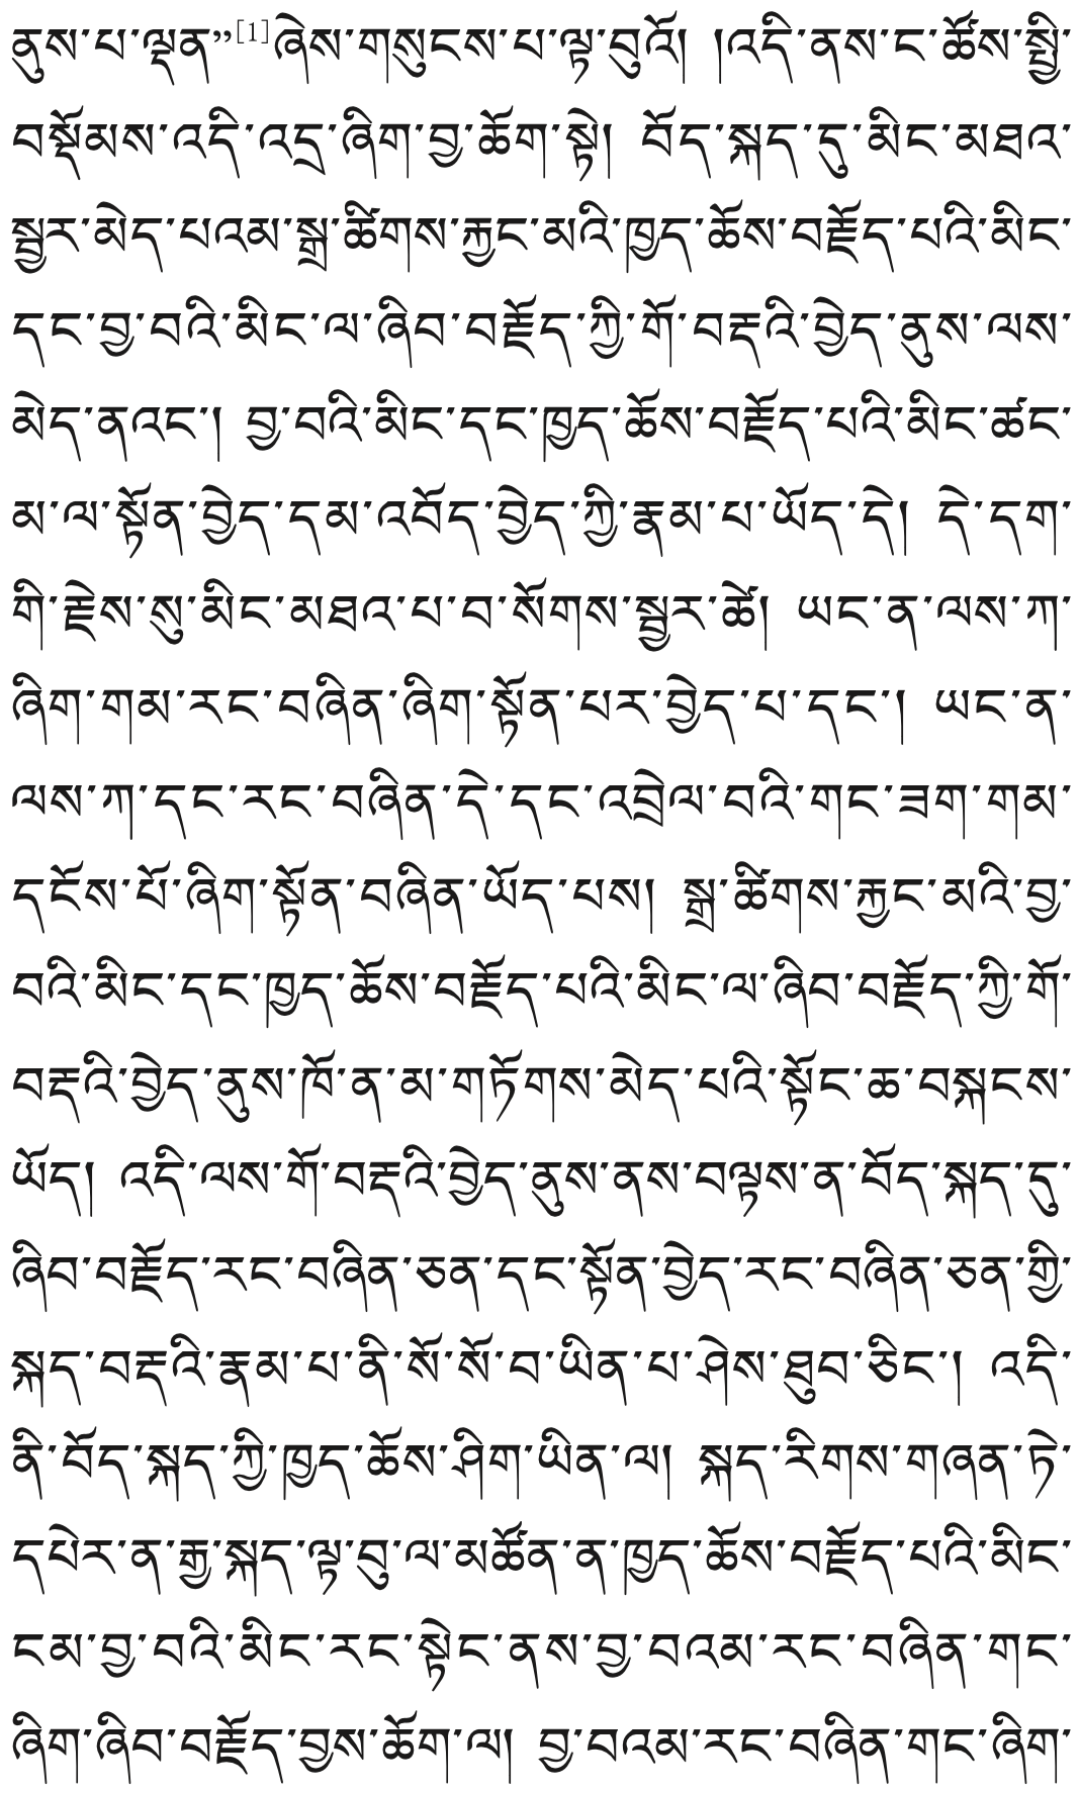 ནུས་པ་ལྡན”[1]ཞེས་གསུངས་པ་ལྟ་བུའོ། །འདི་ནས་ང་ཚོས་སྤྱི་
བསྡོམས་འདི་འདྲ་ཞིག་བྱ་ཆོག་སྟེ། བོད་སྐད་དུ་མིང་མཐའ་
སྦྱར་མེད་པའམ་སྒྲ་ཚིགས་རྐྱང་མའི་ཁྱད་ཆོས་བརྗོད་པའི་མིང་
དང་བྱ་བའི་མིང་ལ་ཞིབ་བརྗོད་ཀྱི་གོ་བརྡའི་བྱེད་ནུས་ལས་
མེད་ནའང་། བྱ་བའི་མིང་དང་ཁྱད་ཆོས་བརྗོད་པའི་མིང་ཚང་
མ་ལ་སྟོན་བྱེད་དམ་འབོད་བྱེད་ཀྱི་རྣམ་པ་ཡོད་དེ། དེ་དག་
གི་རྗེས་སུ་མིང་མཐའ་པ་བ་སོགས་སྦྱར་ཚེ། ཡང་ན་ལས་ཀ་
ཞིག་གམ་རང་བཞིན་ཞིག་སྟོན་པར་བྱེད་པ་དང་། ཡང་ན་
ལས་ཀ་དང་རང་བཞིན་དེ་དང་འབྲེལ་བའི་གང་ཟག་གམ་
དངོས་པོ་ཞིག་སྟོན་བཞིན་ཡོད་པས། སྒྲ་ཚིགས་རྐྱང་མའི་བྱ་
བའི་མིང་དང་ཁྱད་ཆོས་བརྗོད་པའི་མིང་ལ་ཞིབ་བརྗོད་ཀྱི་གོ་
བརྡའི་བྱེད་ནུས་ཁོ་ན་མ་གཏོགས་མེད་པའི་སྟོང་ཆ་བསྐངས་
ཡོད། འདི་ལས་གོ་བརྡའི་བྱེད་ནུས་ནས་བལྟས་ན་བོད་སྐད་དུ་
ཞིབ་བརྗོད་རང་བཞིན་ཅན་དང་སྟོན་བྱེད་རང་བཞིན་ཅན་གྱི་
སྐད་བརྡའི་རྣམ་པ་ནི་སོ་སོ་བ་ཡིན་པ་ཤེས་ཐུབ་ཅིང་། འདི་
ནི་བོད་སྐད་ཀྱི་ཁྱད་ཆོས་ཤིག་ཡིན་ལ། སྐད་རིགས་གཞན་ཏེ་
དཔེར་ན་རྒྱ་སྐད་ལྟ་བུ་ལ་མཚོན་ན་ཁྱད་ཆོས་བརྗོད་པའི་མིང་
ངམ་བྱ་བའི་མིང་རང་སྟེང་ནས་བྱ་བའམ་རང་བཞིན་གང་
ཞིག་ཞིབ་བརྗོད་བྱས་ཆོག་ལ། བྱ་བའམ་རང་བཞིན་གང་ཞིག་